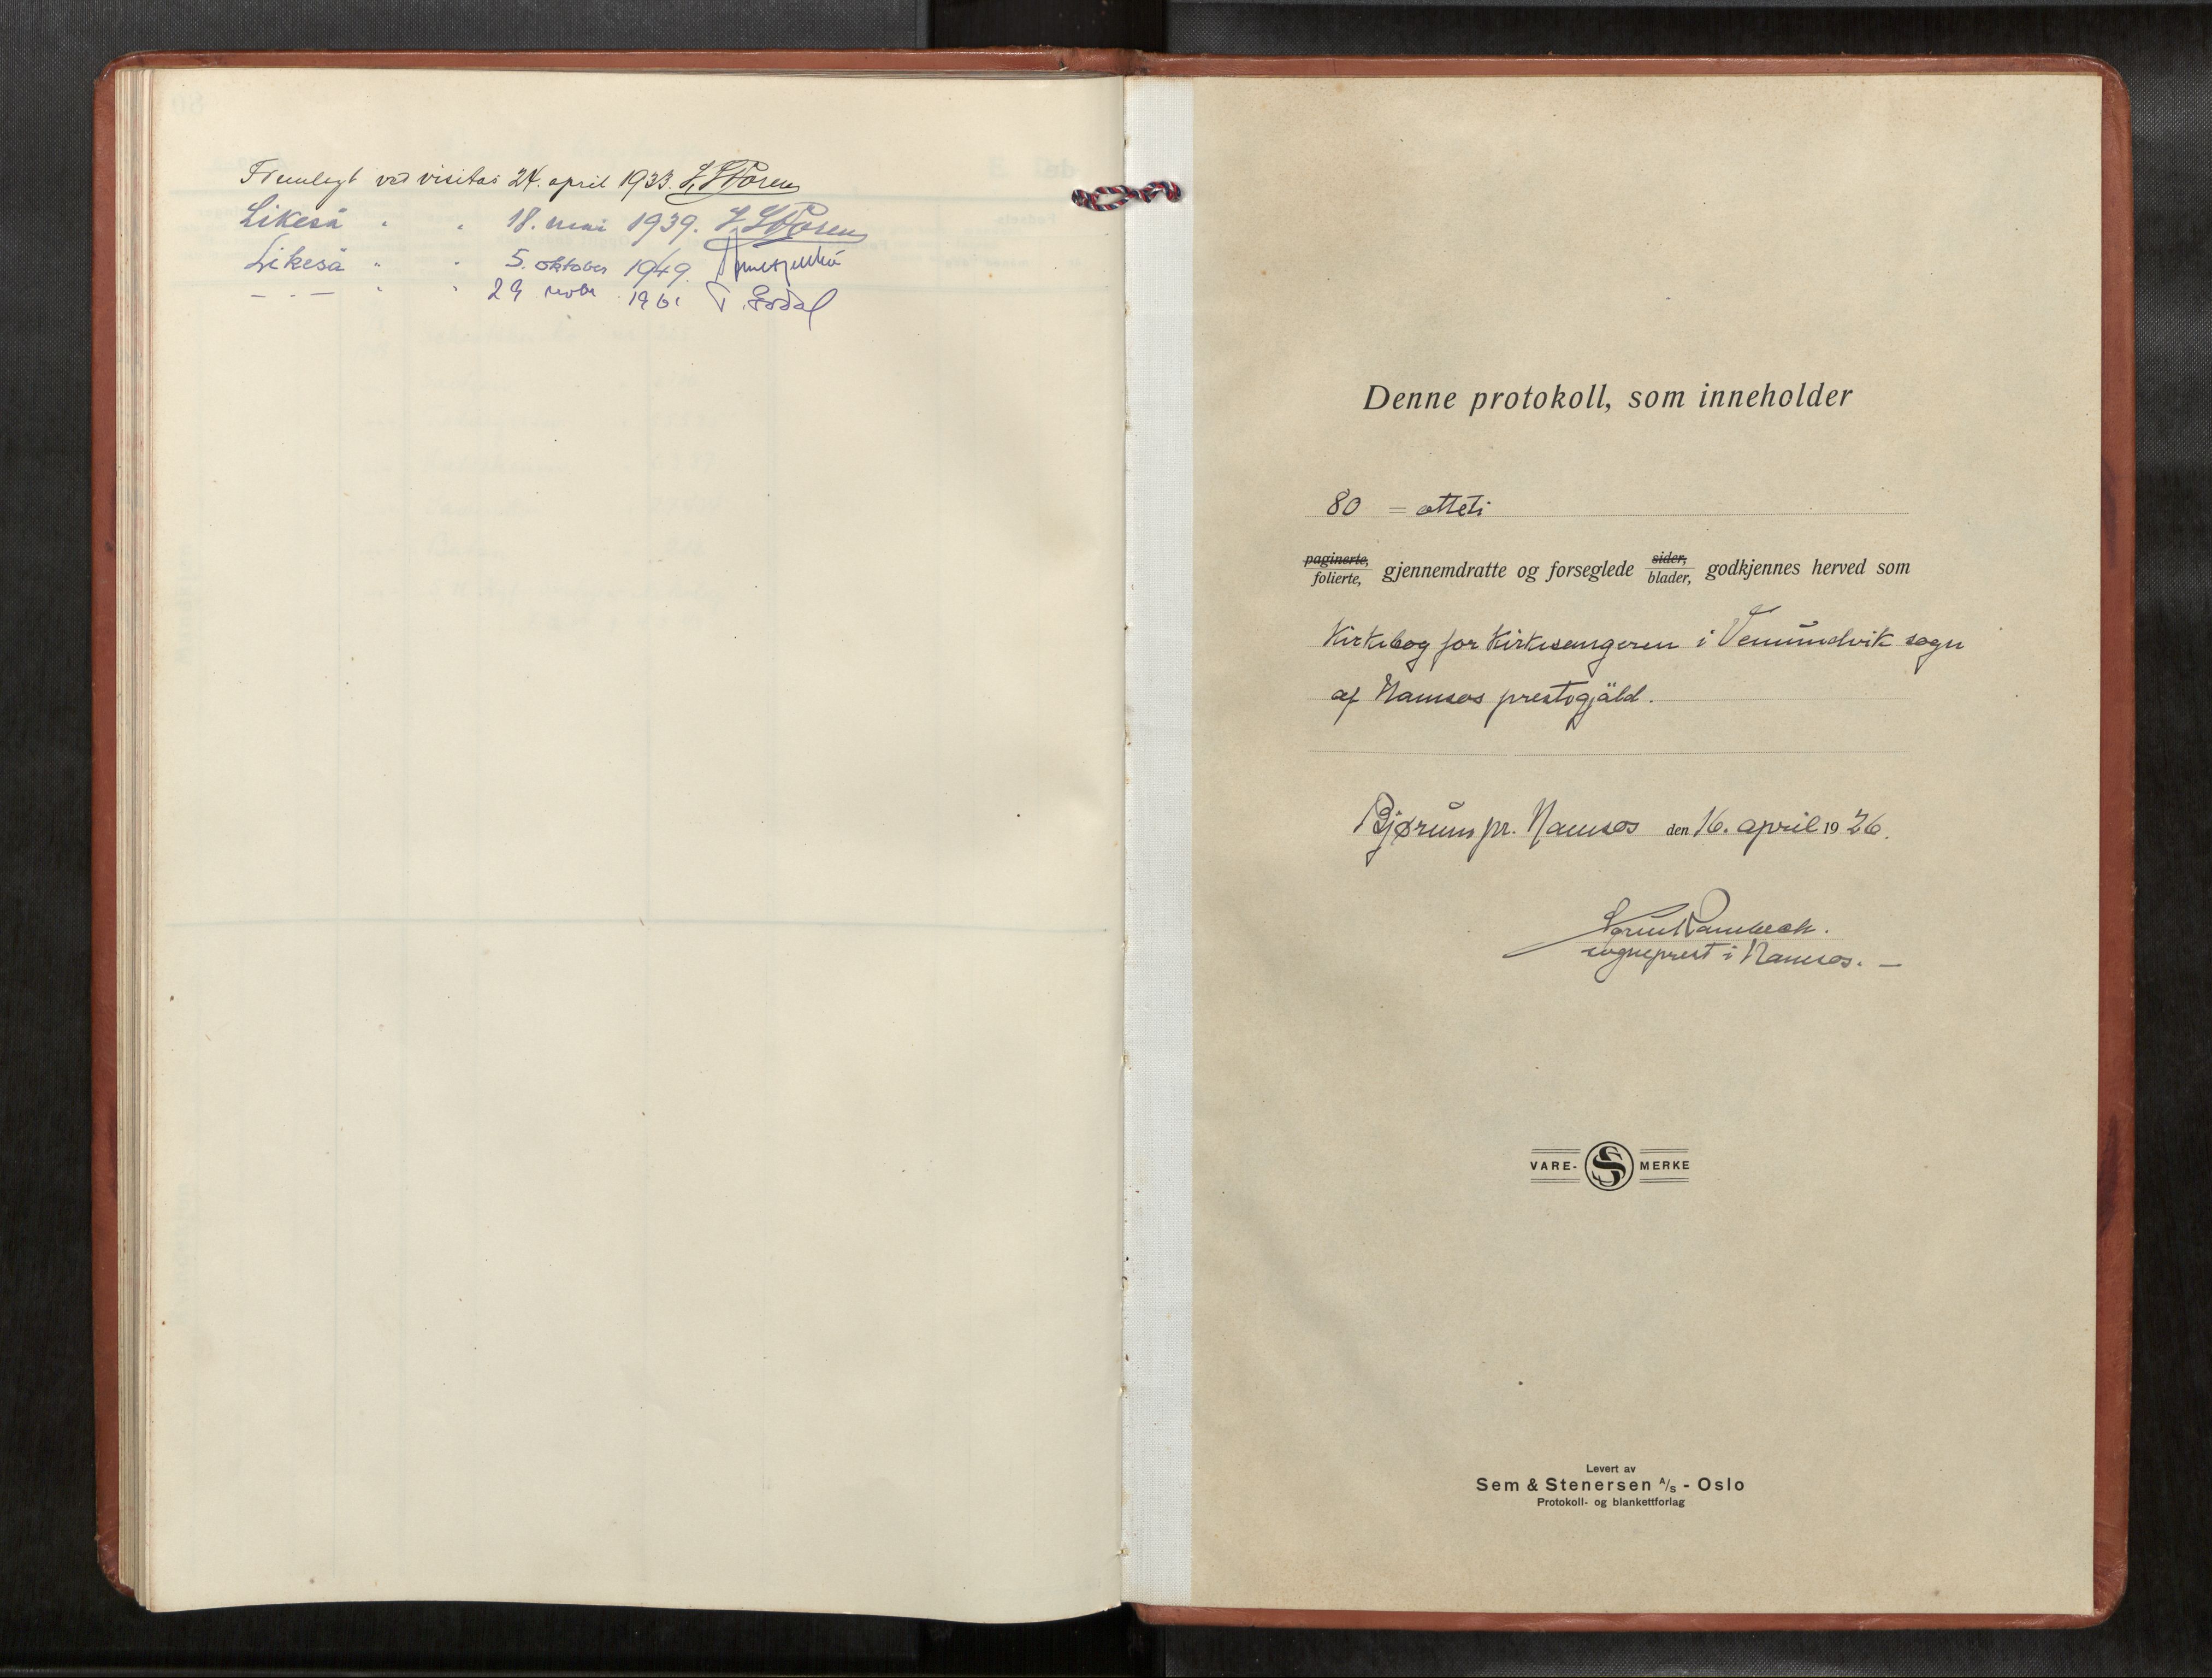 Fremlagt ved visitas 24. april 1933.
Likeså " " 18. mai 1939.
Likeså " " 5. oktober 1949.
— " — " " 29 novbr 1961 T. Godal
Denne protokoll, som inneholder
80 = otteti
paginerte, folierte, gjennemdratte og forseglede sider, blader, godkjennes herved som
Kirkebog for Kirkesangeren i Vemundvik sogn
af Namsos prestegjäld.
Bjørum pr. Namsos den 16. april 1926.
sogneprest i Namsos. —
VARE- S MERKE
Levert av
Sem & Stenersen A/S - Oslo
Protokoll- og blankettforlag